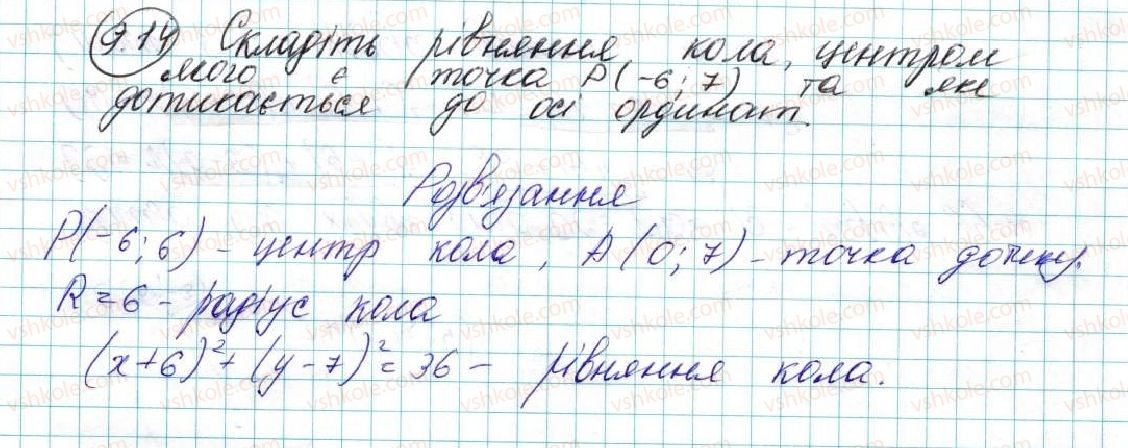 9.14 Складіть рівняння кола, центром
якого є точка P(-6; 7) та яке
дотикається до осі ординат.
Розв'язання
P(-6; 6) - центр кола, A(0; 7) - точка дотику.
R = 6 - радіус кола
(x+6)²+(y-7)²=36 - рівняння кола.